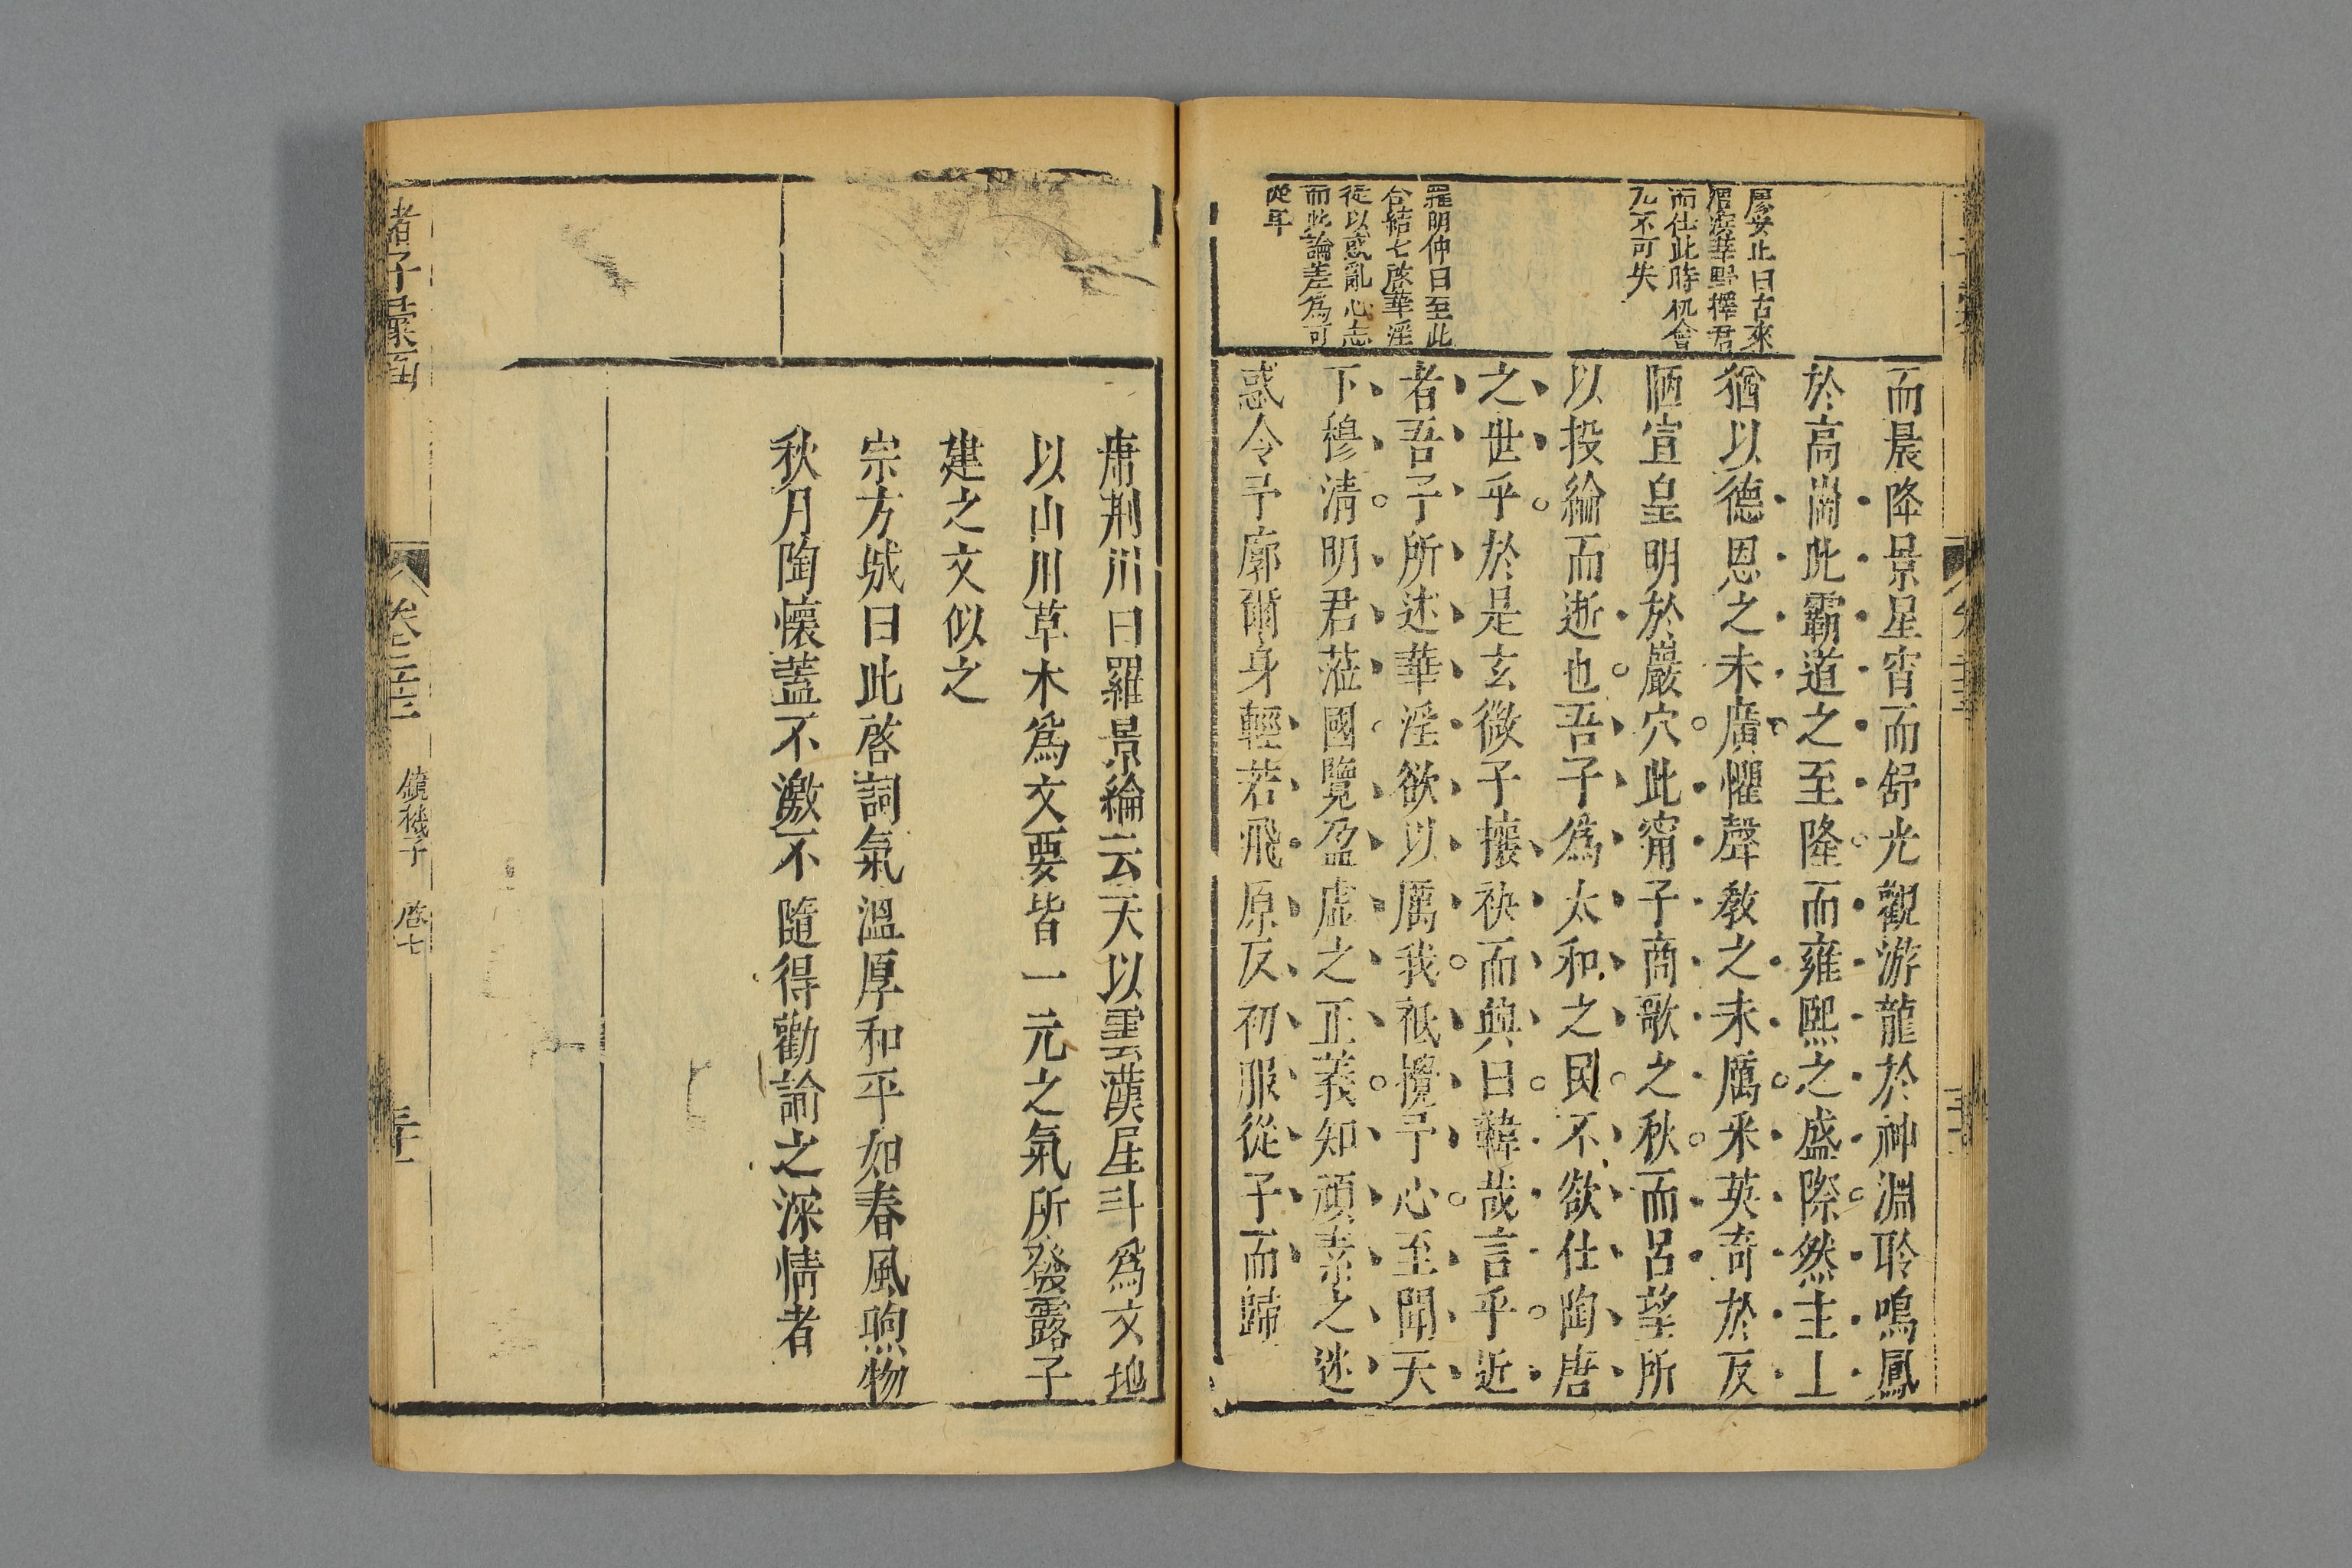 廖安止曰古來
渭濱莘野擇君
而仕此時机會
九不可失
羅明仲曰至此
合結七啓華淫
從以惑亂心志
而此論差為可
從耳
而晨降景星宵而舒光觀游龍於神淵聆鳴鳳
於高崗此霸道之至隆而雍熙之盛際然主上
猶以德恩之未廣懼聲敎之未厲釆英奇於仄
陋宣皇明於巖穴此甯子商歌之秋而呂望所
以投綸而逝也吾子爲太和之民不欲仕陶唐
之世乎於是玄微子攘袂而興曰韙哉言乎近
者吾子所述華淫欲以厲我祗攪予心至聞天
下穆清明君蒞國覽盈虛之正義知頑素之迷
惑令予廓爾身輕若飛原反初服從子而歸
唐荆川曰羅景綸云天以雲漢星斗爲文地
以山川草木爲文要皆一元之氣所發露子
建之文似之
宗方城曰此啓詞氣溫厚和平如春風喣物
秋月陶懷蓋不激不隨得勸諭之深情者
諸子彙函
卷之二十三
鏡機子
啓七
三十一